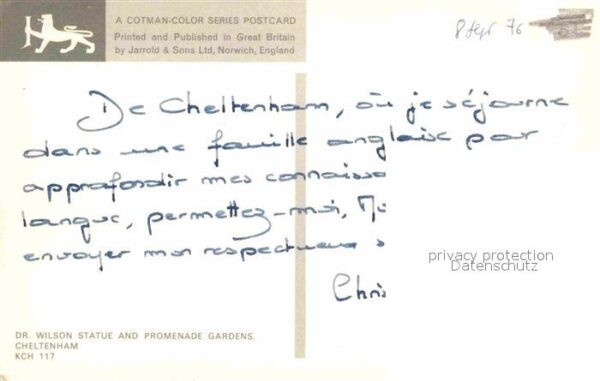 A COTMAN-COLOR SERIES POSTCARD
Printed and Published in Great Britain
by Jarrold & Sons Ltd, Norwich, England
8 Sept 76
De Cheltenham, où je séjourne
dans une famille anglaise pour
approfondir mes connaiss
langue, permettez-moi,
envoyer mon respectueux s
Chris
privacy protection
Datenschutz
DR. WILSON STATUE AND PROMENADE GARDENS,
CHELTENHAM
KCH 117